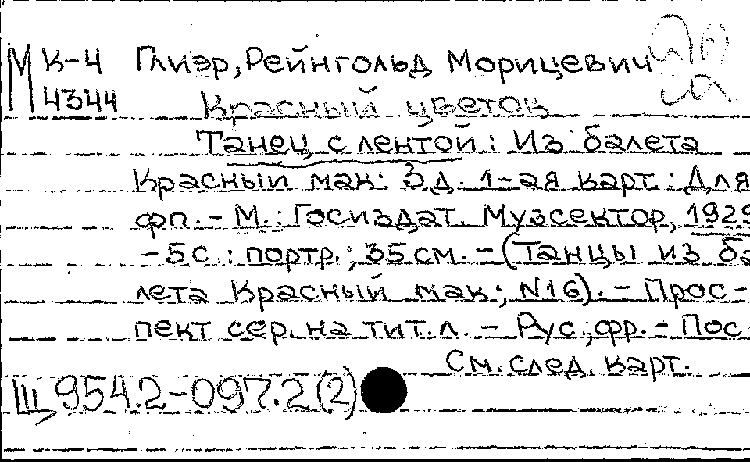 М К-4 Глиэр, Рейнгольд Морицевич
4344 Красный цветок
Танец с лентой: Из балета
Красный мак: 3 д. 1-ая карт.: Для
фп. - М.: Госиздат. Музсектор, 1929
- 5 с.: портр.; 35 см. - (Танцы из ба
лета Красный мак; N16). - Прос-
пект сер. на тит. л. - Рус., фр. - Пос
См. след. карт.
Щ 954.2-097.2(2)